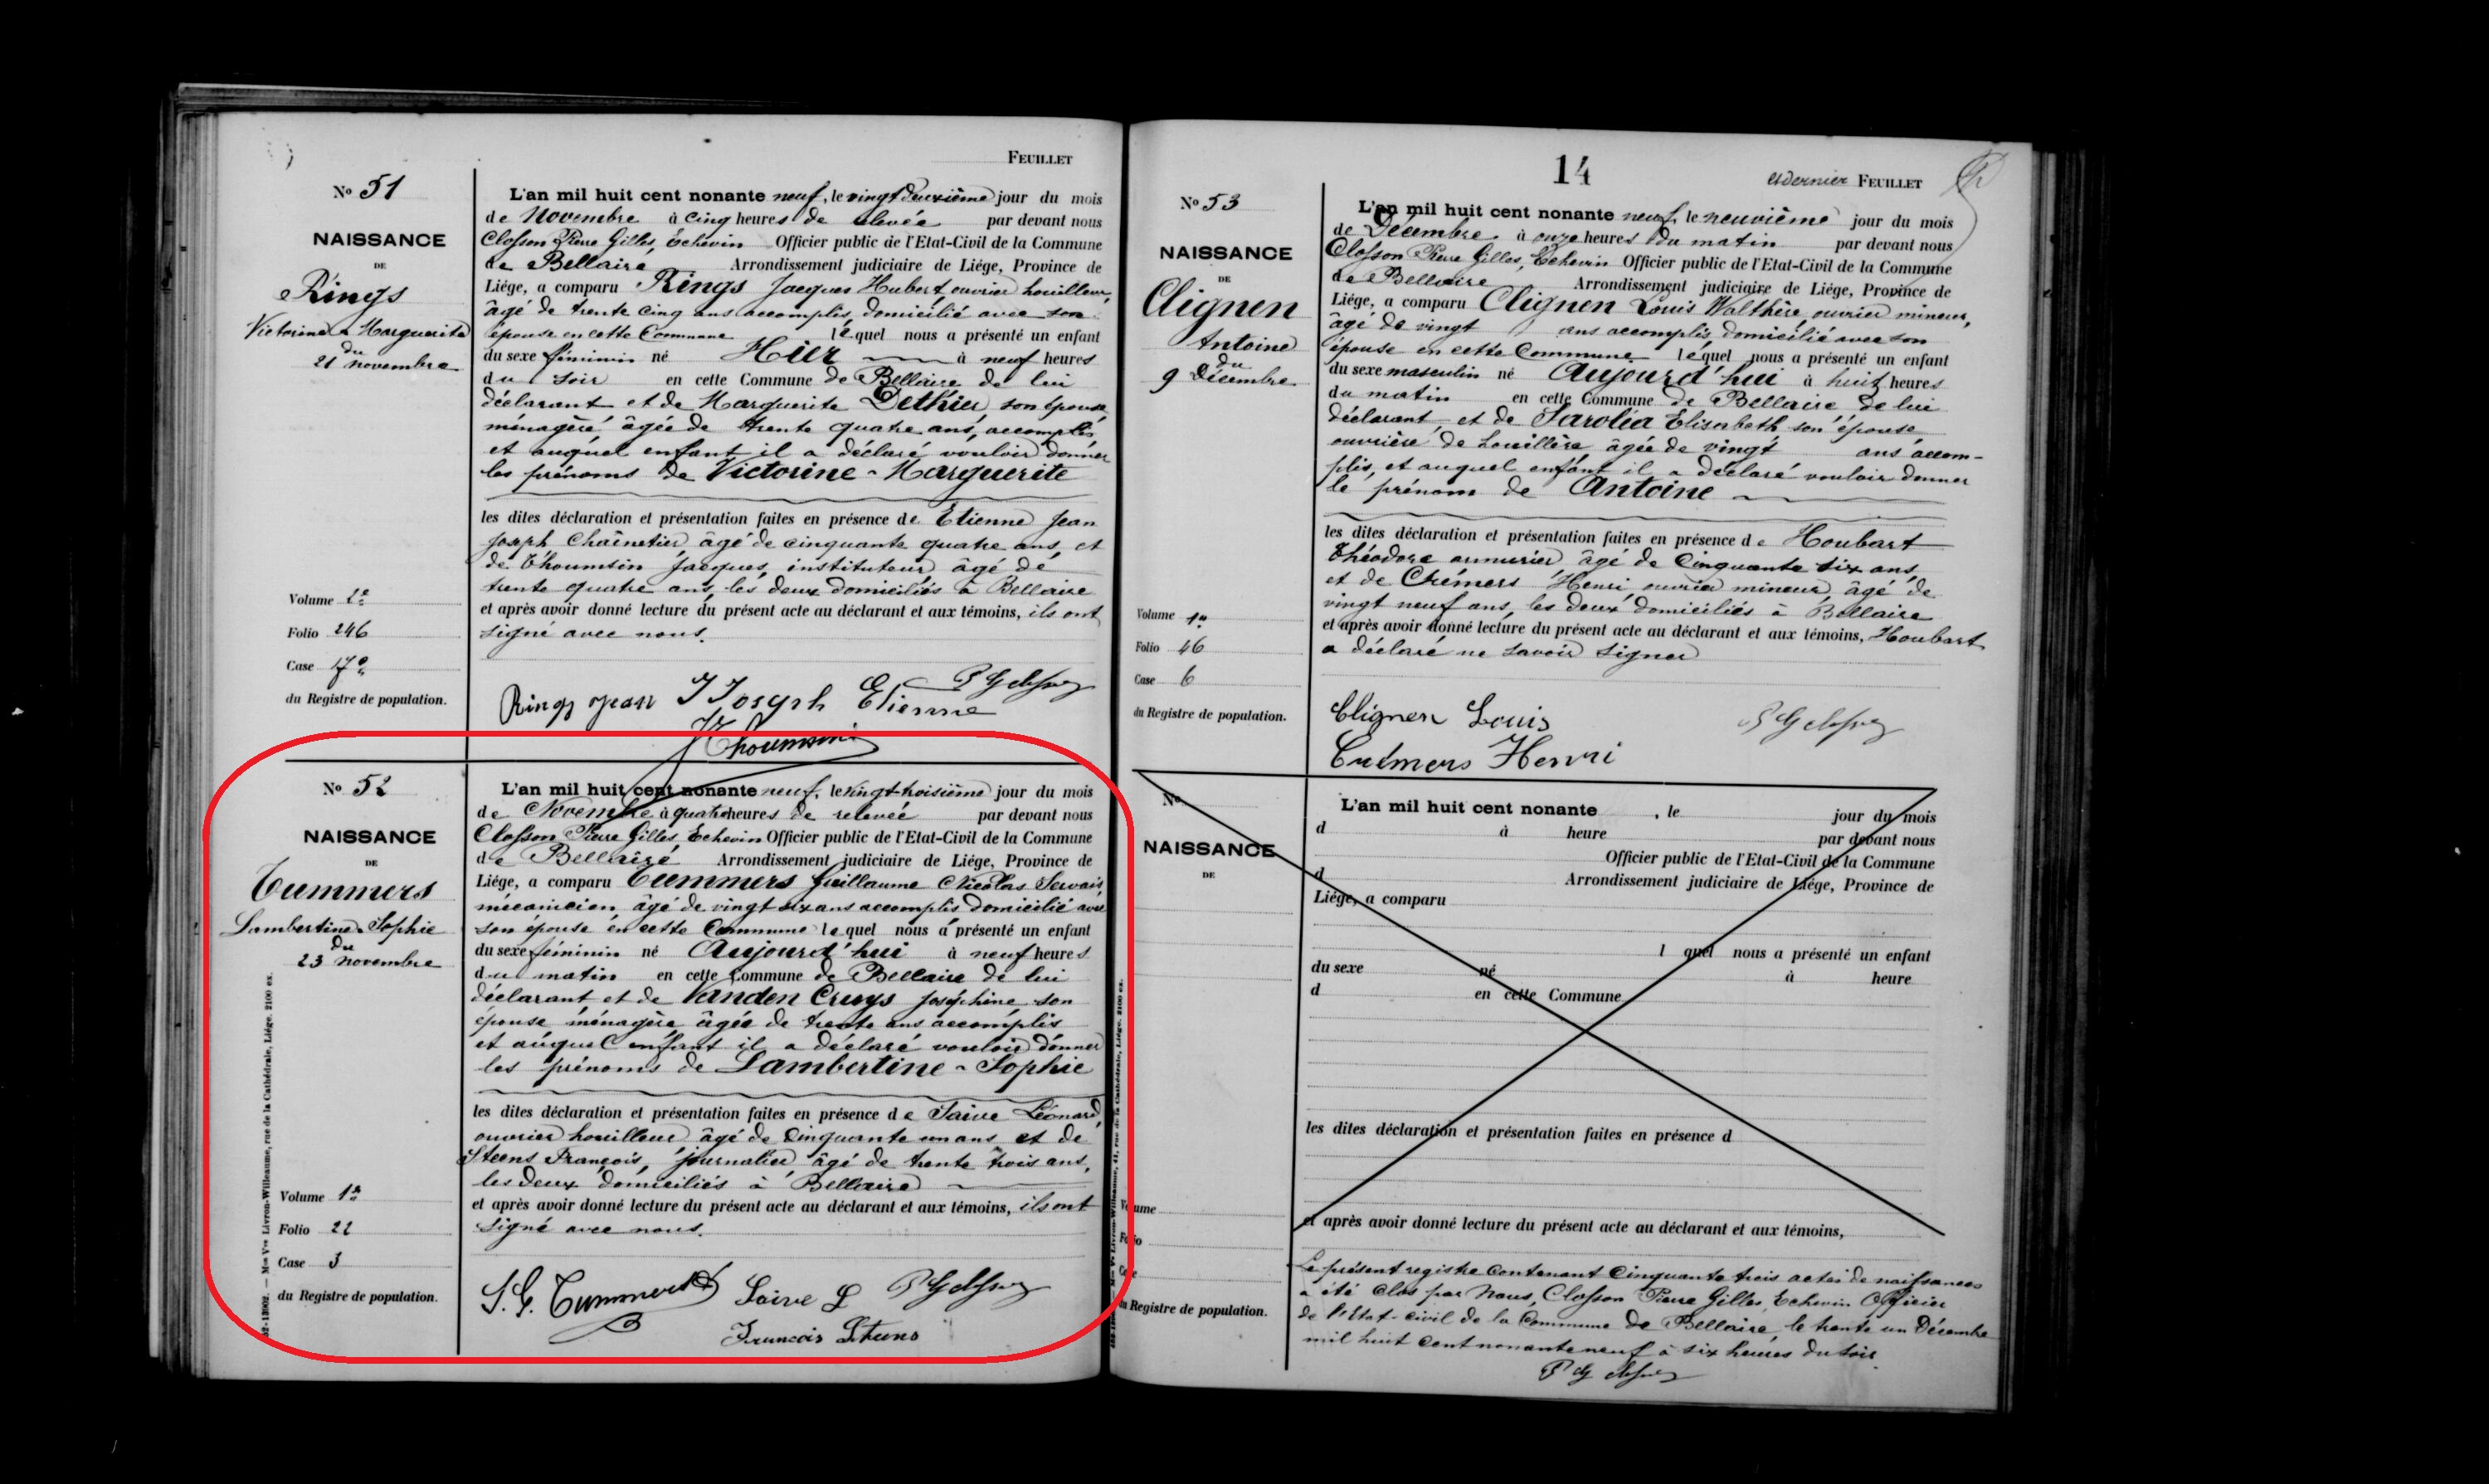 FEUILLET
No 51
NAISSANCE
DE
Rings
Victorine-Marguerite
du
21 novembre
Volume 1e
Folio 246
Case 17e
du Registre de population.
L'an mil huit cent nonante neuf, le vingt deuxième jour du mois
de Novembre à cinq heures de relevée par devant nous
Closson Pierre Gilles, Echevin Officier public de l'Etat-Civil de la Commune
de Bellaire Arrondissement judiciaire de Liége, Province de
Liége, a comparu Rings Jacques Hubert, ouvrier houilleur,
âgé de trente cinq ans accomplis, domicilié avec son
épouse en cette Commune lequel nous a présenté un enfant
du sexe féminin né Hier à neuf heures
du soir en cette Commune de Bellaire de lui
déclarant et de Marguerite Dethier, son épouse,
ménagère âgée de trente quatre ans, accomplis
et auquel enfant il a déclaré vouloir donner
les prénoms de Victorine-Marguerite
les dites déclaration et présentation faites en présence de Etienne Jean
Joseph Chaînetier âgé de cinquante quatre ans, et
de Thoumsin Jacques, instituteur âgé de
trente quatre ans, les deux domiciliés à Bellaire
et après avoir donné lecture du présent acte au déclarant et aux témoins, ils ont
signé avec nous.
Rings Jean J Joseph Etienne
JThoumsin
No 52
NAISSANCE
DE
Tummers
Lambertine-Sophie
du
23 novembre
Volume 1e
Folio 22
Case 3
du Registre de population.
52-12002. — Mon Vve Livron-Willeaume, rue de la Cathédrale, Liége. 2100 ex.
L'an mil huit cent nonante neuf, le vingt-troisième jour du mois
de Novembre à quatre heures de relevée par devant nous
Closson Pierre Gilles, Echevin Officier public de l'Etat-Civil de la Commune
de Bellaire Arrondissement judiciaire de Liége, Province de
Liége, a comparu Tummers Guillaume Nicolas Servais,
mécanicien âgé de vingt six ans accomplis domicilié avec
son épouse en cette Commune lequel nous a présenté un enfant
du sexe féminin né Aujourd'hui à neuf heures
du matin en cette Commune de Bellaire de lui
déclarant, et de Vanden Cruys Joséphine son
épouse ménagère âgée de trente ans accomplis
et auquel enfant il a déclaré vouloir donner
les prénoms de Lambertine-Sophie
les dites déclaration et présentation faites en présence de Saive Léonard,
ouvrier houilleur âgé de Cinquante un ans et de
Steens François, journalier âgé de trente trois ans,
les deux domiciliés à Bellaire
et après avoir donné lecture du présent acte au déclarant et aux témoins, ils ont
signé avec nous.
S. G. Tummers Saive L
François Steens
14
et dernier FEUILLET
No 53
NAISSANCE
DE
Clignen
Antoine
du
9 Décembre
Volume 1e
Folio 46
Case 6
du Registre de population.
L'an mil huit cent nonante neuf, le neuvième jour du mois
de Décembre, à onze heures du matin par devant nous
Closson Pierre Gilles, Echevin Officier public de l'Etat-Civil de la Commune
de Bellaire Arrondissement judiciaire de Liége, Province de
Liége, a comparu Clignen Louis Walthère, ouvrier mineur,
âgé de vingt ans accomplis, domicilié avec son
épouse en cette Commune lequel nous a présenté un enfant
du sexe masculin né Aujourd'hui à huit heures
du matin en cette Commune de Bellaire de lui
déclarant, et de Saroléa Elisabeth son épouse
ouvrière de houillère, âgée de vingt ans accom-
plis, et auquel enfant il a déclaré vouloir donner
le prénom de Antoine
les dites déclaration et présentation faites en présence de Houbart
Théodore armurier, âgé de Cinquante six ans,
et de Crémers Henri, ouvrier mineur, âgé de
vingt neuf ans, les deux domiciliés à Bellaire
et après avoir donné lecture du présent acte au déclarant et aux témoins, Houbart
a déclaré ne savoir signer
Clignen Louis
Cremers Henri
No
NAISSANCE
DE
Volume
Folio
Case
du Registre de population.
L'an mil huit cent nonante , le jour du mois
d à heure par devant nous
Officier public de l'Etat-Civil de la Commune
d Arrondissement judiciaire de Liége, Province de
Liége, a comparu
l quel nous a présenté un enfant
du sexe né à heure
d en cette Commune
les dites déclaration et présentation faites en présence d
et après avoir donné lecture du présent acte au déclarant et aux témoins,
Le présent registre contenant Cinquante trois actes de naissances
a été clos par Nous, Closson Pierre Gilles Echevin Officier
de l'Etat-civil de la Commune de Bellaire, le trente un Décembre
mil huit cent nonante neuf à six heures du soir